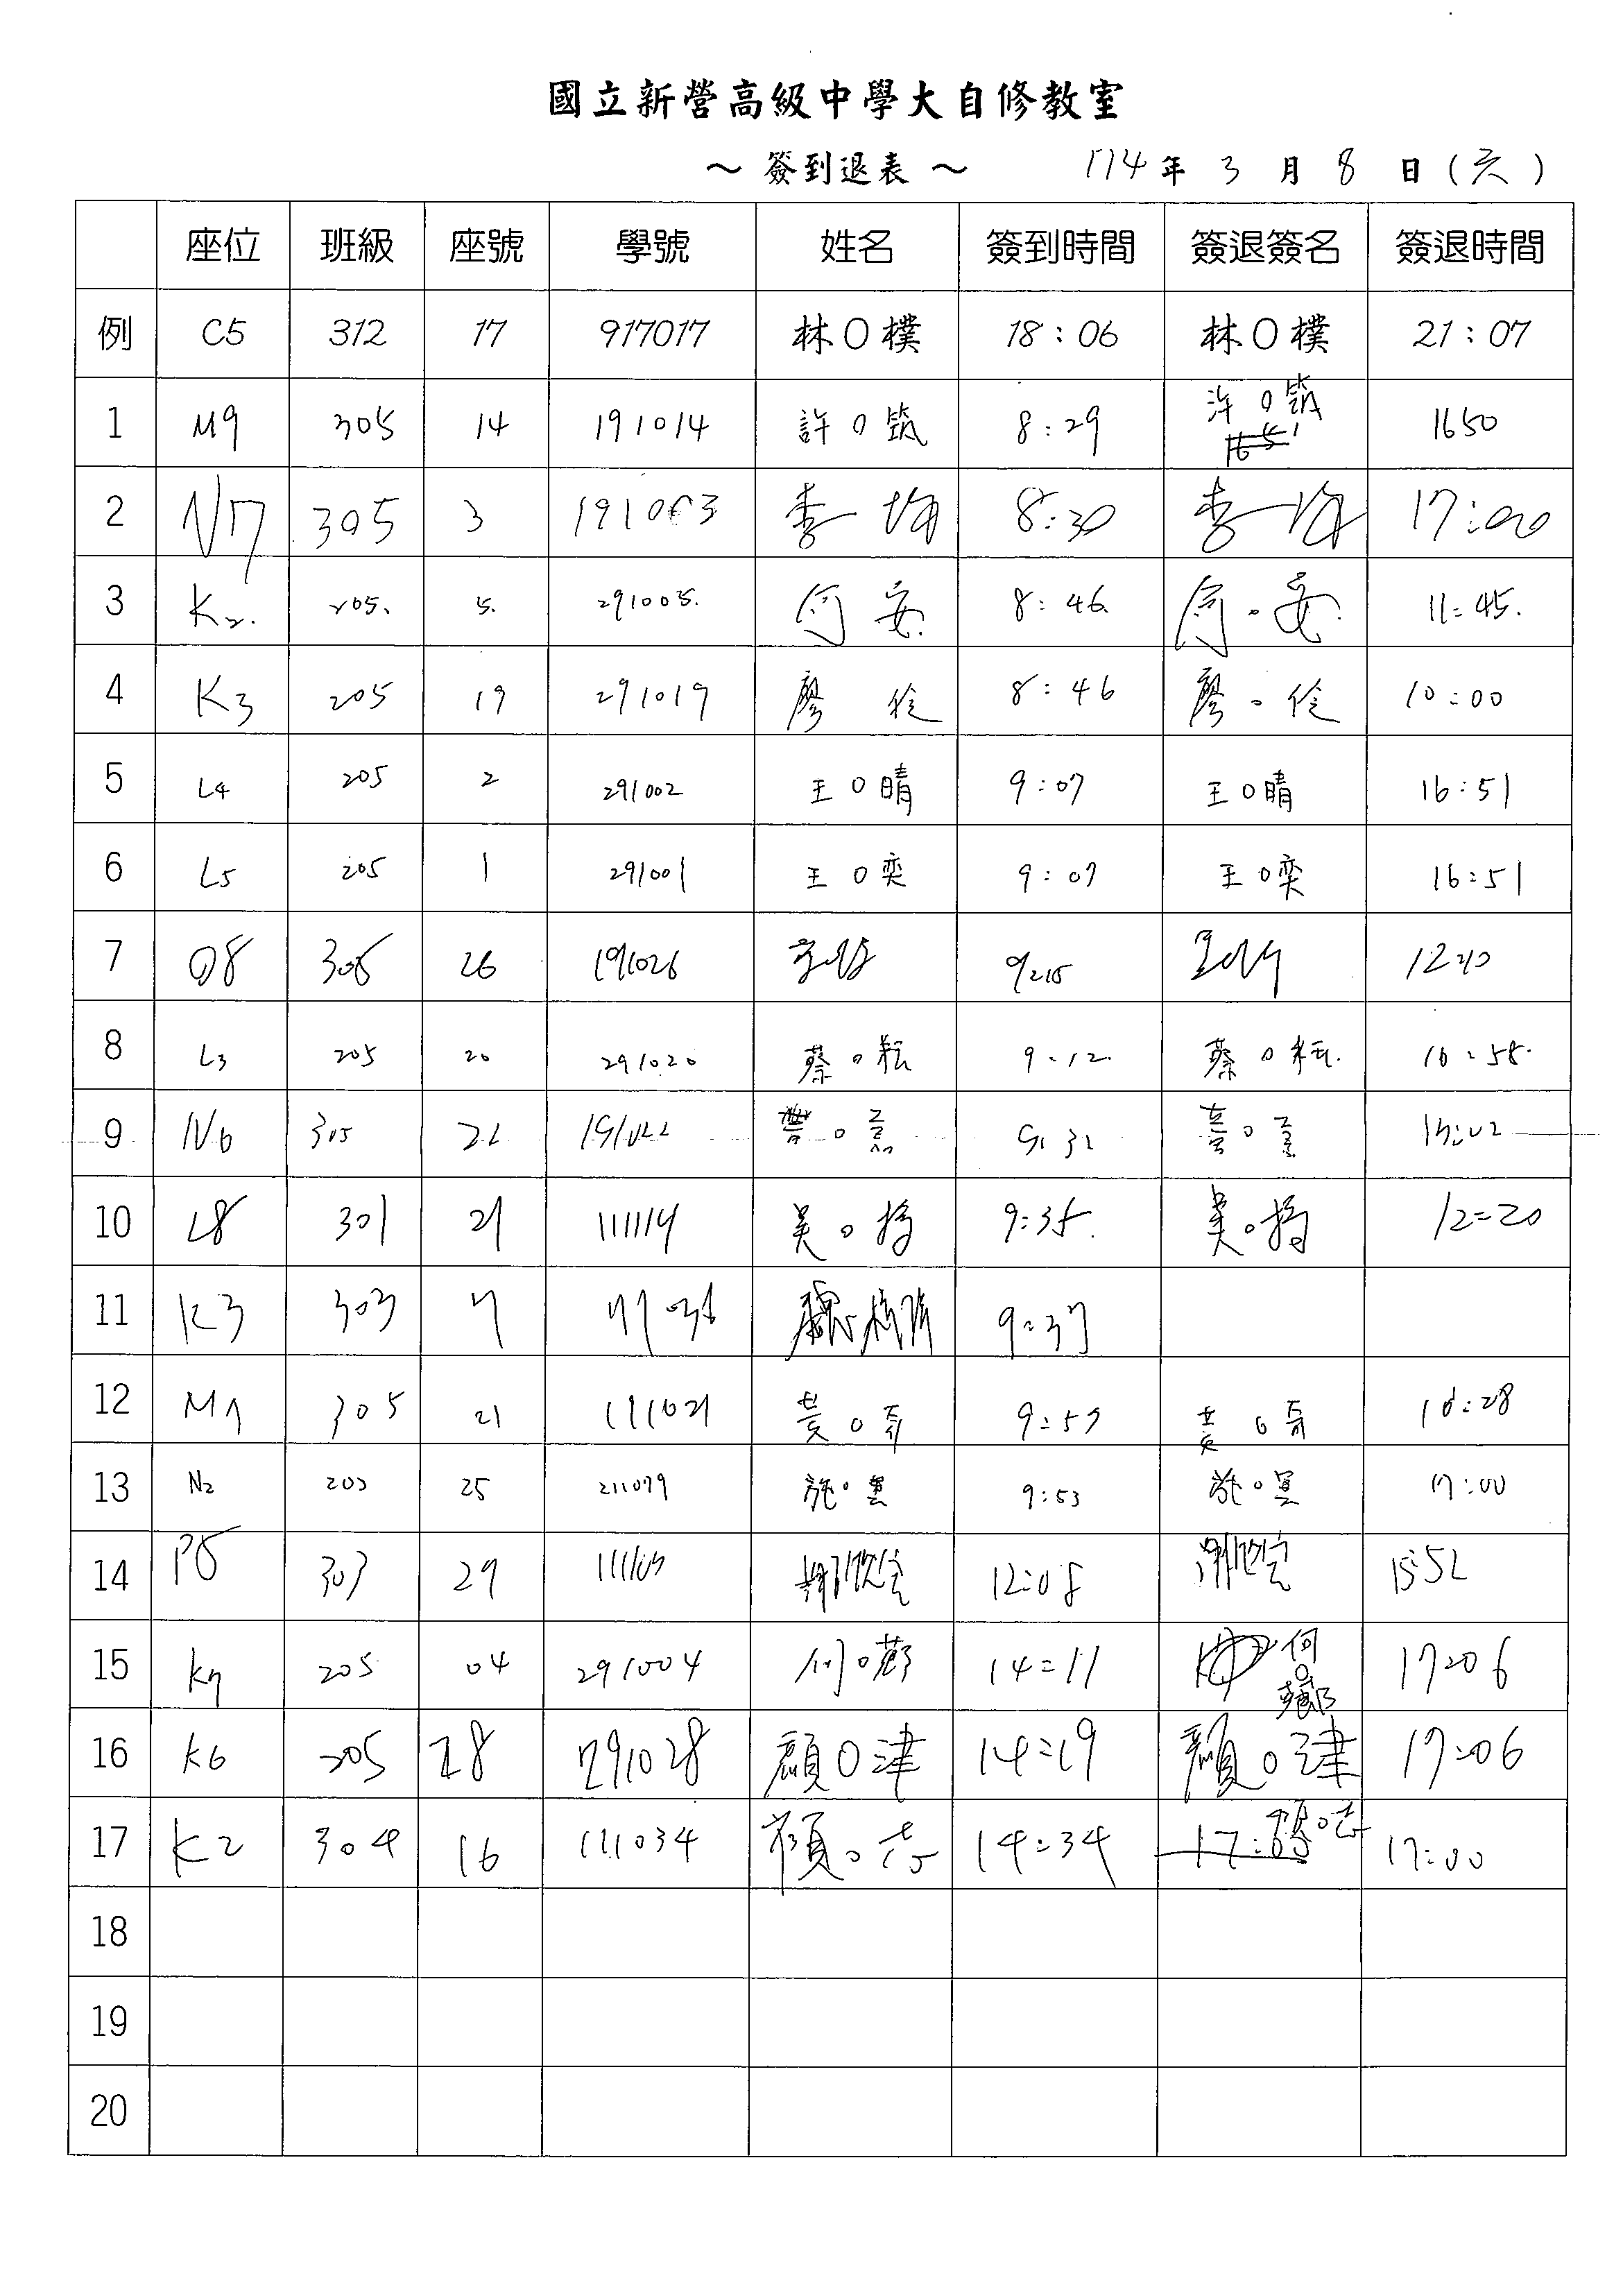 國立新營高級中學大自修教室
～ 簽到退表 ～ 114 年 3 月 8 日 (六)
座位 班級 座號 學號 姓名 簽到時間 簽退簽名 簽退時間
例 C5 312 17 917017 林〇樸 18:06 林〇樸 21:07
1 M9 305 14 191014 許〇筑 8:29 許〇筑 1650
2 N7 305 3 1910 3 李 8:30 李 17:00
3 K2. 205. 5. 291005. 何 安. 8:46. 何。安. 11:45.
4 K3 205 19 291019 廖 佺 8:46 廖。佺 10:00
5 L4 205 2 291002 王〇晴 9:07 王〇晴 16:51
6 L5 205 1 291001 王〇奕 9:07 王〇奕 16:51
7 O8 305 26 191026 9:15 12:10
8 L3 205 20 291020 蔡〇耘 9:12. 蔡〇耘. 16:58.
9 N6 305 22 191022 9:32
10 L8 301 21 111114 吳〇 9:35. 吳〇 12:20
11 K3 303 7 9:37
12 M7 305 21 111021 黃〇 9:57 黃〇 16:28
13 N2 203 25 211079 施〇 9:53 施〇 17:00
14 P5 303 29 12:08 15:52
15 K7 205 04 291004 何〇 14:11 何〇 17:06
16 K6 205 28 291028 顏〇津 14:19 顏〇津 17:06
17 K2 304 16 111034 顏〇志 14:34 17:05 顏〇志 17:00
18
19
20